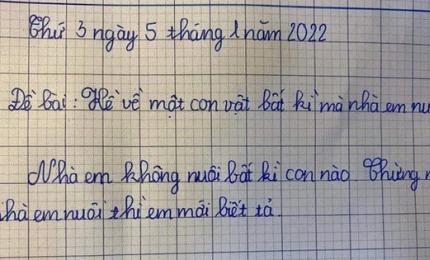 Thứ 3 ngày 5 tháng 1 năm 2022
Đề bài: Kể về một con vật bất kì mà nhà em nu
Nhà em không nuôi bất kì con nào. Chừng n
hà em nuôi thì em mới biết tả.